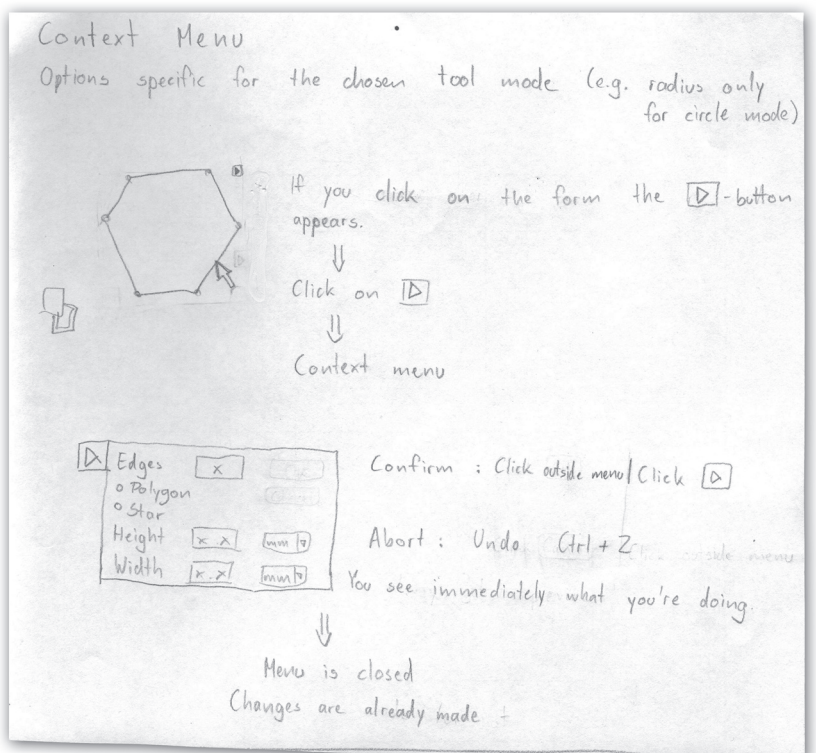 Context Menu
Options specific for the chosen tool mode (e.g. radius only
for circle mode)
If you click on the form the ▷-button
appears.
⇓
Click on ▷
⇓
Context menu
Edges x
o Polygon
o Star
Height x.x mm
Width x.x mm
Confirm : Click outside menu / Click ▷
Abort : Undo Ctrl + Z
You see immediately what you're doing.
⇓
Menu is closed
Changes are already made